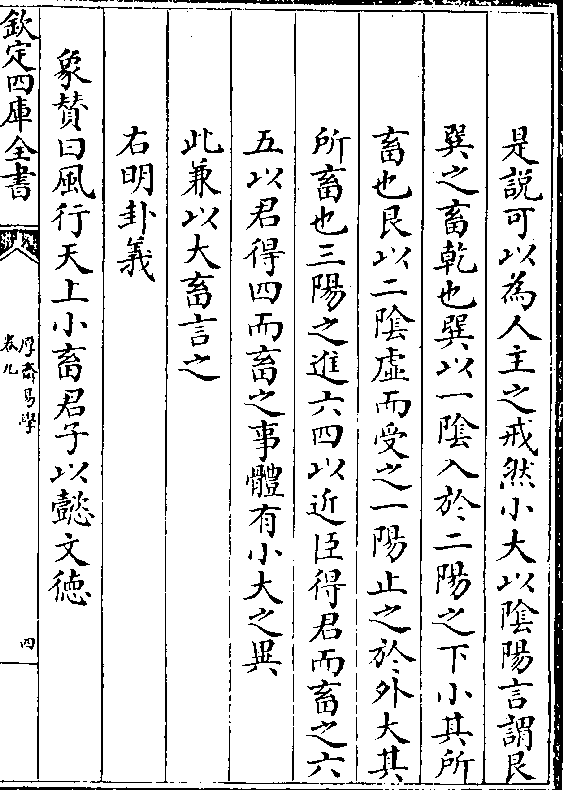 是說可以為人主之戒然小大以陰陽言謂艮
巽之畜乾也巽以一陰入於二陽之下小其所
畜也艮以二陰虛而受之一陽止之於外大其
所畜也三陽之進六四以近臣得君而畜之六
五以君得四而畜之事體有小大之異
此兼以大畜言之
右明卦義
象賛曰風行天上小畜君子以懿文德
欽定四庫全書
厚齋易學
卷九
四